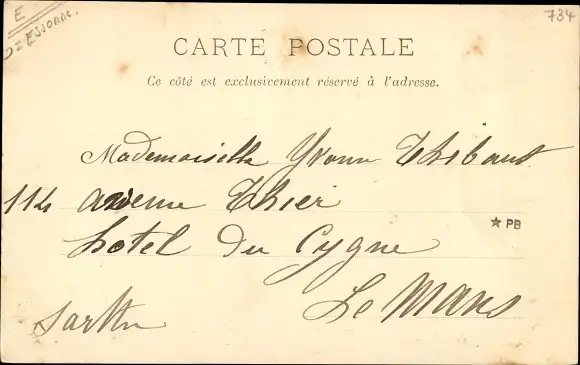 E
D = Essonne.
734
CARTE POSTALE
Ce côté est exclusivement réservé à l'adresse.
Mademoiselle Yvonne Thibaut
114 avenue Thier
hotel Du Cygne
★ PB
Le Mans
Sarthe